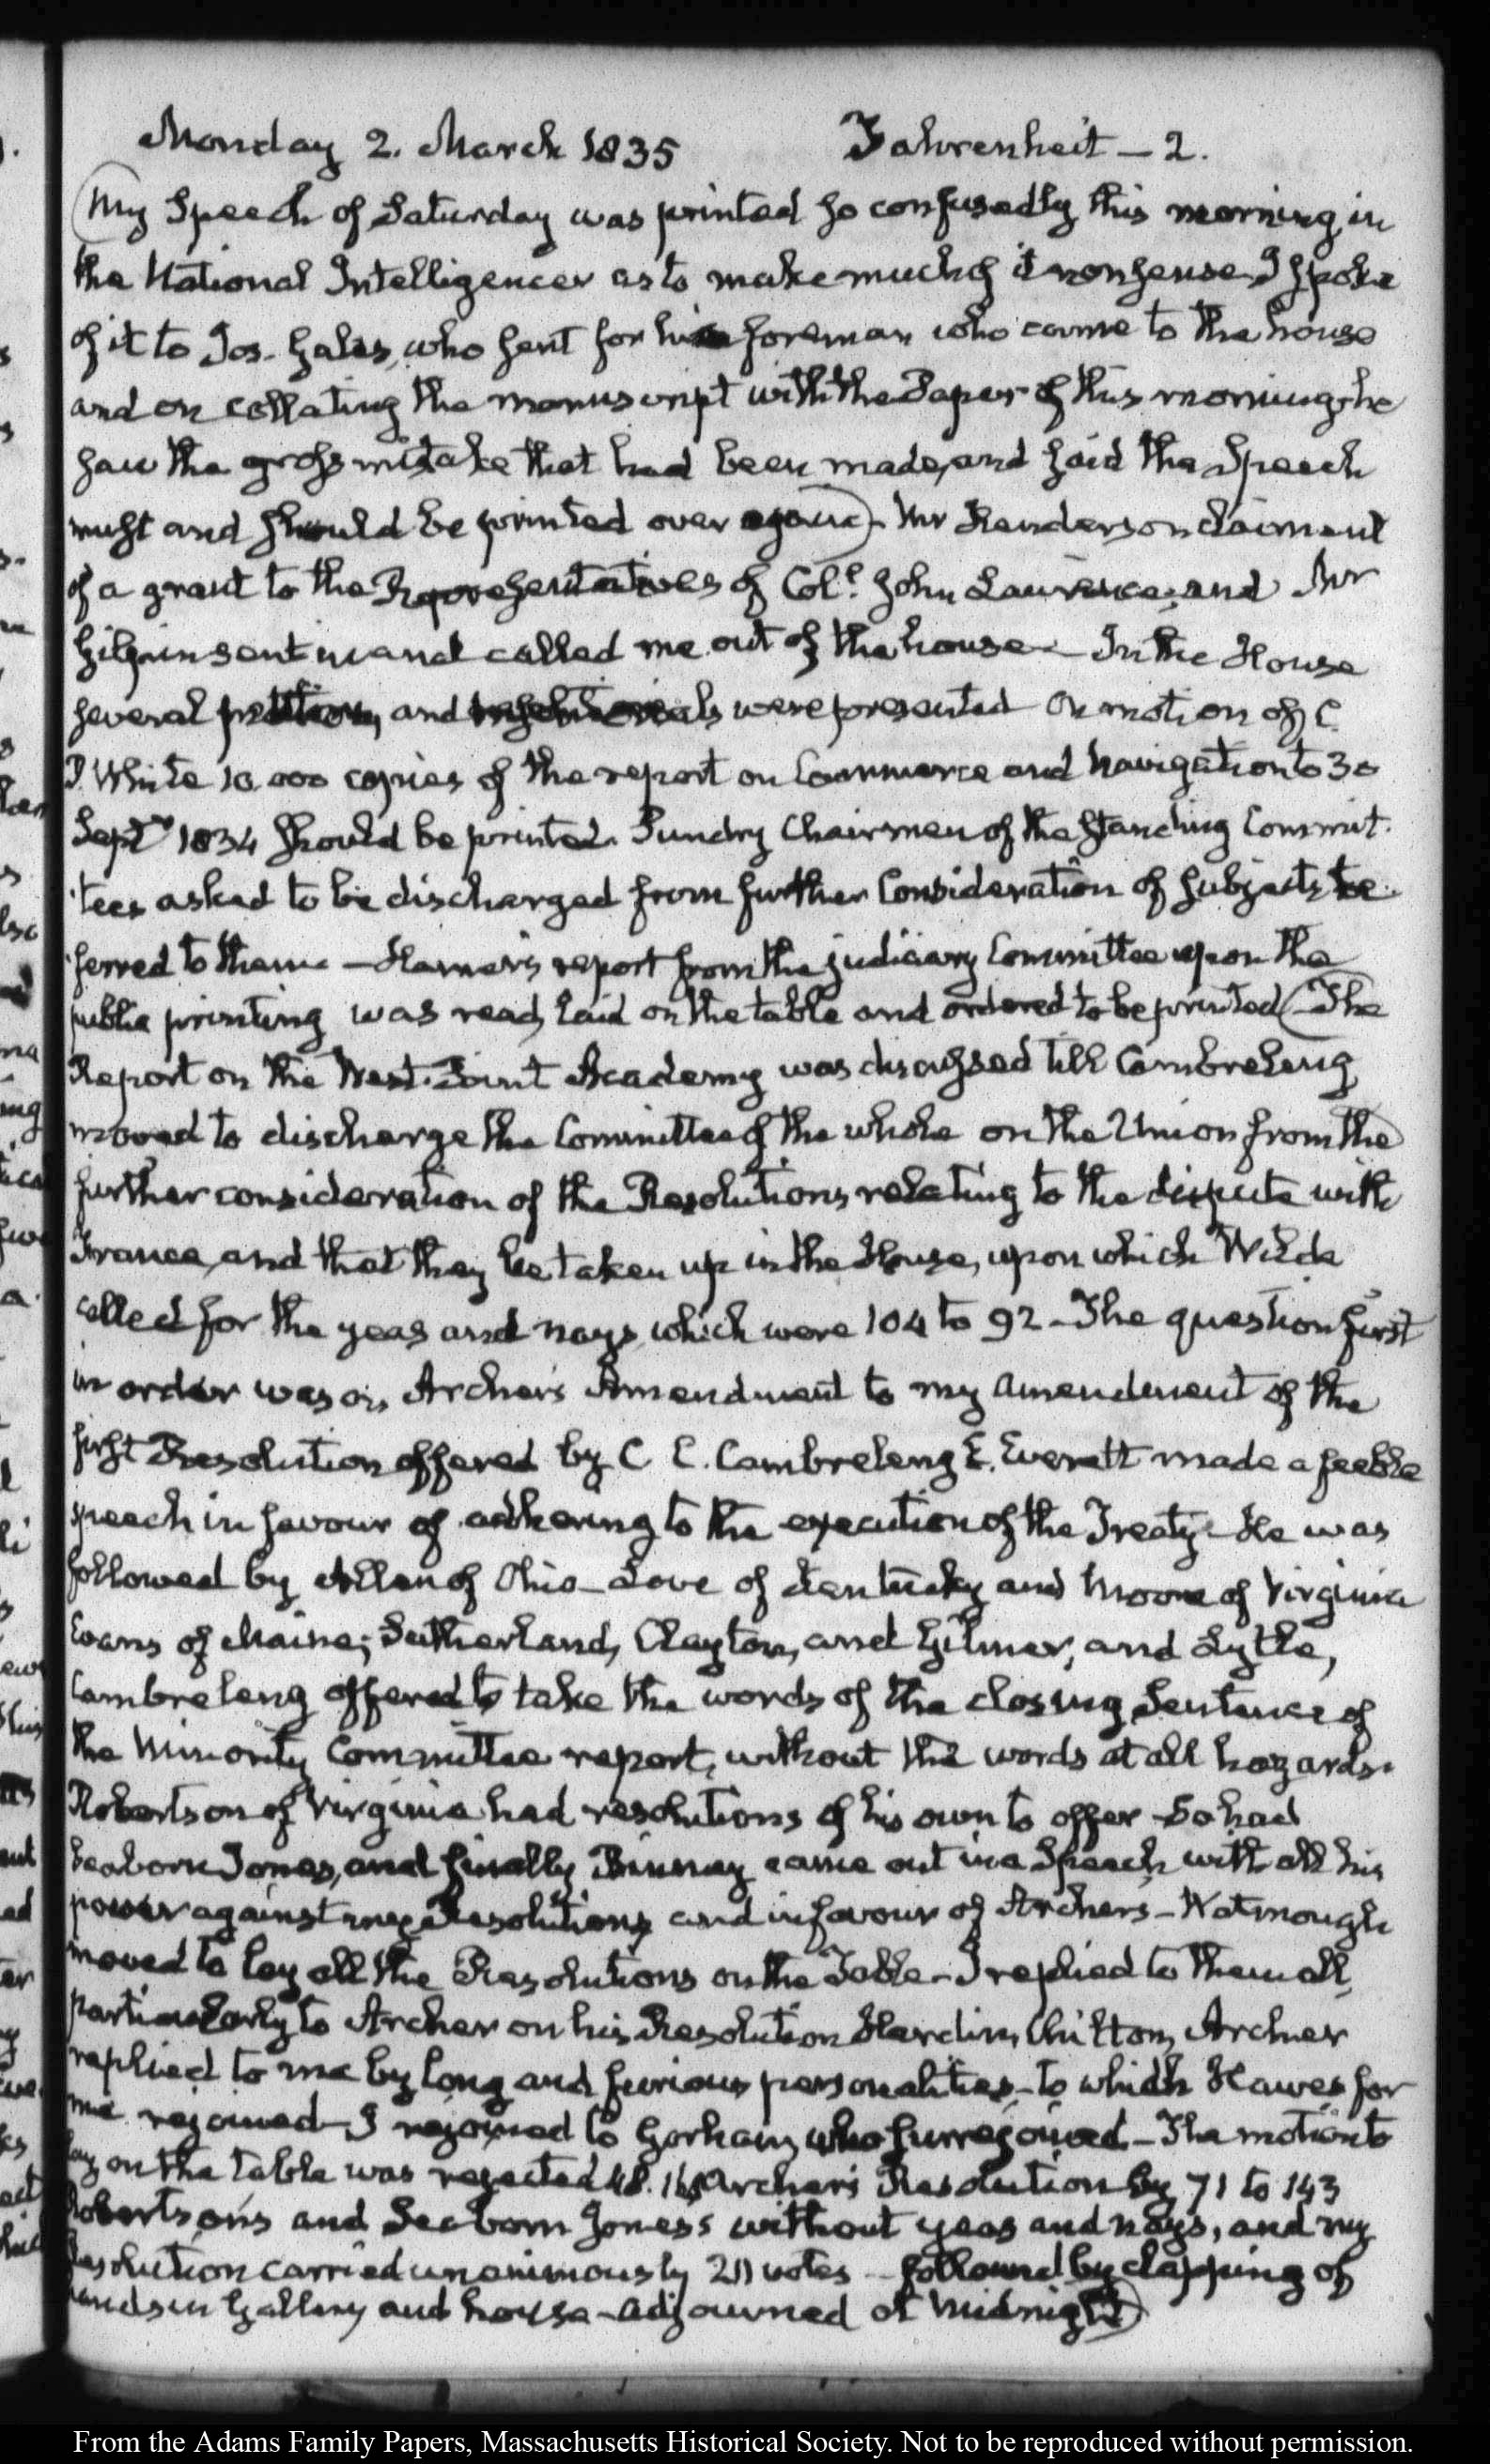 Monday 2. March 1835 Fahrenheit – 2.
(My Speech of Saturday was printed so confusedly this morning in
the National Intelligencer as to make much of it nonsense. I spoke
of it to Jos. Gales, who sent for his foreman who came to the house
and on collating the manuscript with the Paper of this morning he
saw the gross mistake that had been made, and said the Speech
must and should be printed over again) – Mr Henderson claimant
of a grant to the Representatives of Coll. John Laurence, and Mr
Gilpin sent in and called me out of the house – In the House
several petitions, and were presented On motion of C.
P. White 10.000 copies of the report on Commerce and Navigation to 30
Septr 1834 should be printed. Sundry Chairmen of the Standing Commit-
tees asked to be discharged from further Consideration of subjects re-
ferred to them – Hamer's report from the judiciary Committee upon the
public printing was read, laid on the table and ordered to be printed (The
Report on the West-Point Academy was discussed till Cambreleng
moved to discharge the Committee of the whole on the Union from the
further consideration of the Resolutions relating to the dispute with
France, and that they be taken up in the House, upon which Wilde
called for the yeas and nays, which were 104 to 92 – The question first
in order was on Archer's Amendment to my amendment of the
first Resolution offered by C. C. Cambreleng E. Everett made a feeble
speech in favour of adhering to the execution of the Treaty – He was
followed by Allen of Ohio – Love of Kentucky and Moore of Virginia
Evans of Maine; Sutherland, Clayton, and Gilmer, and Lytle,
Cambreleng offered to take the words of the closing Sentence of
the Minority Committee report, without the words at all hazards.
Robertson of Virginia had resolutions of his own to offer – So had
Seaborn Jones, and finally Binney came out in a Speech with all his
power against my Resolutions and in favour of Archers – Watmough
moved to lay all the Resolutions on the Table – I replied to them all,
particularly to Archer on his Resolution Hardin, Chilton, Archer
replied to me by long and furious personalities – to which Hawes for
me rejoined – I rejoined to Gorham, who surrejoined – The motion to
lay on the table was rejected 48. Archer's Resolution by 71 to 143
Robertson's and Seaborn Jones's without yeas and nays, and my
Resolution carried unanimously 211 votes – followed by clapping of
hands in Gallery and house – adjourned at Midnight)
From the Adams Family Papers, Massachusetts Historical Society. Not to be reproduced without permission.